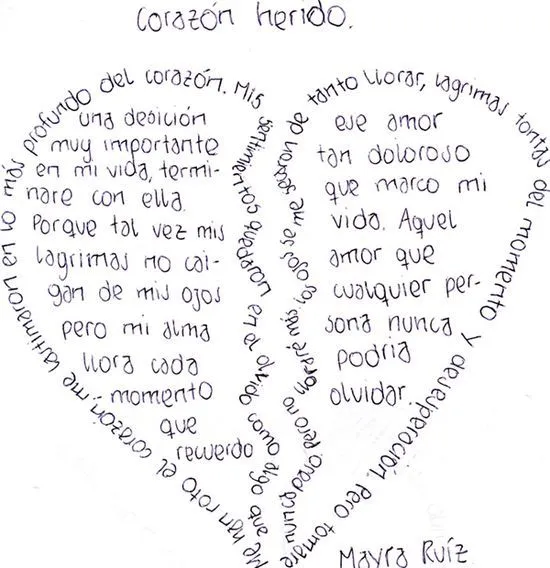 Corazón herido.
Me han roto el corazón, me lastimaron en lo más profundo del corazón. Mis sentimientos quedaron en el olvido como algo que
nunca pasó pero no lloraré más, los ojos se me secaron de tanto llorar, lagrimas tontas del momento y desesperación. Pero tomare
una desición
muy importante
en mi vida, termi-
nare con ella.
Porque tal vez mis
lagrimas no cai-
gan de mis ojos
pero mi alma
llora cada
momento
que
recuerdo
ese amor
tan doloroso
que marco mi
vida. Aquel
amor que
cualquier per-
sona nunca
podria
olvidar.
Mayra Ruíz